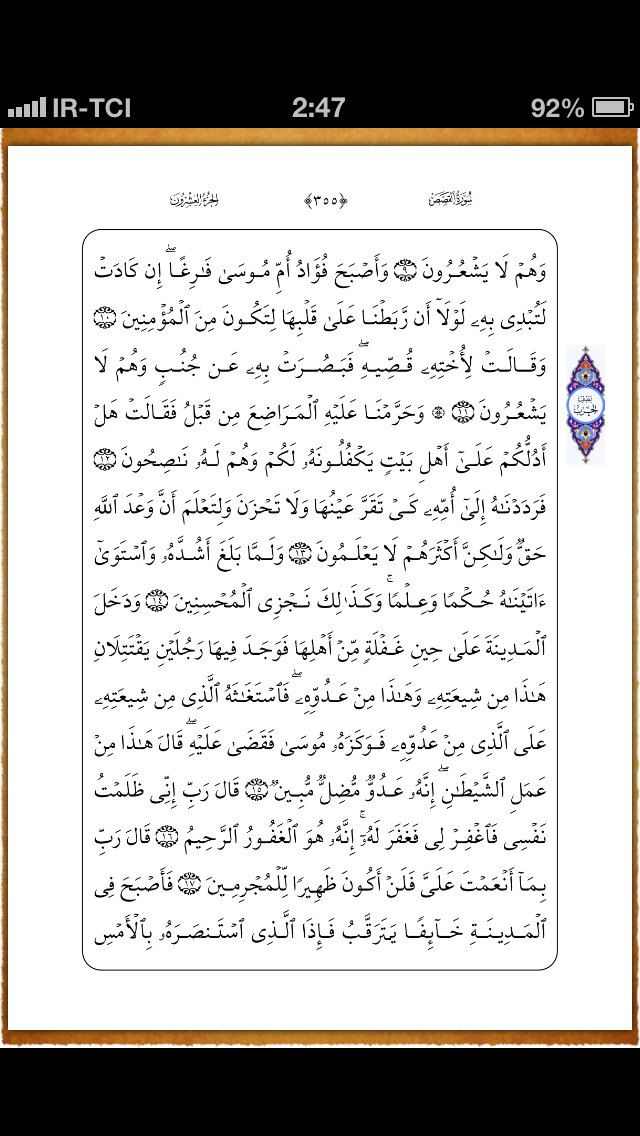 IR-TCI 2:47 92%
سُورَةُ القَصَصِ ﴿٣٥٥﴾ الجُزءُ العِشرُونَ
وَهُمۡ لَا يَشۡعُرُونَ ٩ وَأَصۡبَحَ فُؤَادُ أُمِّ مُوسَىٰ فَـٰرِغًاۖ إِن كَادَتۡ
لَتُبۡدِی بِهِۦ لَوۡلَاۤ أَن رَّبَطۡنَا عَلَىٰ قَلۡبِهَا لِتَكُونَ مِنَ ٱلۡمُؤۡمِنِینَ ١٠
وَقَالَتۡ لِأُخۡتِهِۦ قُصِّیهِۖ فَبَصُرَتۡ بِهِۦ عَن جُنُبٍ وَهُمۡ لَا
یَشۡعُرُونَ ١١ ۞ وَحَرَّمۡنَا عَلَیۡهِ ٱلۡمَرَاضِعَ مِن قَبۡلُ فَقَالَتۡ هَلۡ
أَدُلُّكُمۡ عَلَىٰۤ أَهۡلِ بَیۡتٍ یَكۡفُلُونَهُۥ لَكُمۡ وَهُمۡ لَهُۥ نَـٰصِحُونَ ١٢
فَرَدَدۡنَـٰهُ إِلَىٰۤ أُمِّهِۦ كَیۡ تَقَرَّ عَیۡنُهَا وَلَا تَحۡزَنَ وَلِتَعۡلَمَ أَنَّ وَعۡدَ ٱللَّهِ
حَقٌّ وَلَـٰكِنَّ أَكۡثَرَهُمۡ لَا یَعۡلَمُونَ ١٣ وَلَمَّا بَلَغَ أَشُدَّهُۥ وَٱسۡتَوَىٰۤ
ءَاتَیۡنَـٰهُ حُكۡمًا وَعِلۡمًاۚ وَكَذَ ٰ⁠لِكَ نَجۡزِی ٱلۡمُحۡسِنِینَ ١٤ وَدَخَلَ
ٱلۡمَدِینَةَ عَلَىٰ حِینِ غَفۡلَةٍ مِّنۡ أَهۡلِهَا فَوَجَدَ فِیهَا رَجُلَیۡنِ یَقۡتَتِلَانِ
هَـٰذَا مِن شِیعَتِهِۦ وَهَـٰذَا مِنۡ عَدُوِّهِۦۖ فَٱسۡتَغَـٰثَهُ ٱلَّذِی مِن شِیعَتِهِۦ
عَلَى ٱلَّذِی مِنۡ عَدُوِّهِۦ فَوَكَزَهُۥ مُوسَىٰ فَقَضَىٰ عَلَیۡهِۖ قَالَ هَـٰذَا مِنۡ
عَمَلِ ٱلشَّیۡطَـٰنِۖ إِنَّهُۥ عَدُوٌّ مُّضِلٌّ مُّبِینٌ ١٥ قَالَ رَبِّ إِنِّی ظَلَمۡتُ
نَفۡسِی فَٱغۡفِرۡ لِی فَغَفَرَ لَهُۥۤۚ إِنَّهُۥ هُوَ ٱلۡغَفُورُ ٱلرَّحِیمُ ١٦ قَالَ رَبِّ
بِمَاۤ أَنۡعَمۡتَ عَلَیَّ فَلَنۡ أَكُونَ ظَهِیرًا لِّلۡمُجۡرِمِینَ ١٧ فَأَصۡبَحَ فِی
ٱلۡمَدِینَةِ خَاۤىِٕفًا یَتَرَقَّبُ فَإِذَا ٱلَّذِی ٱسۡتَنصَرَهُۥ بِٱلۡأَمۡسِ
نِصْفُ
الحِزْبِ